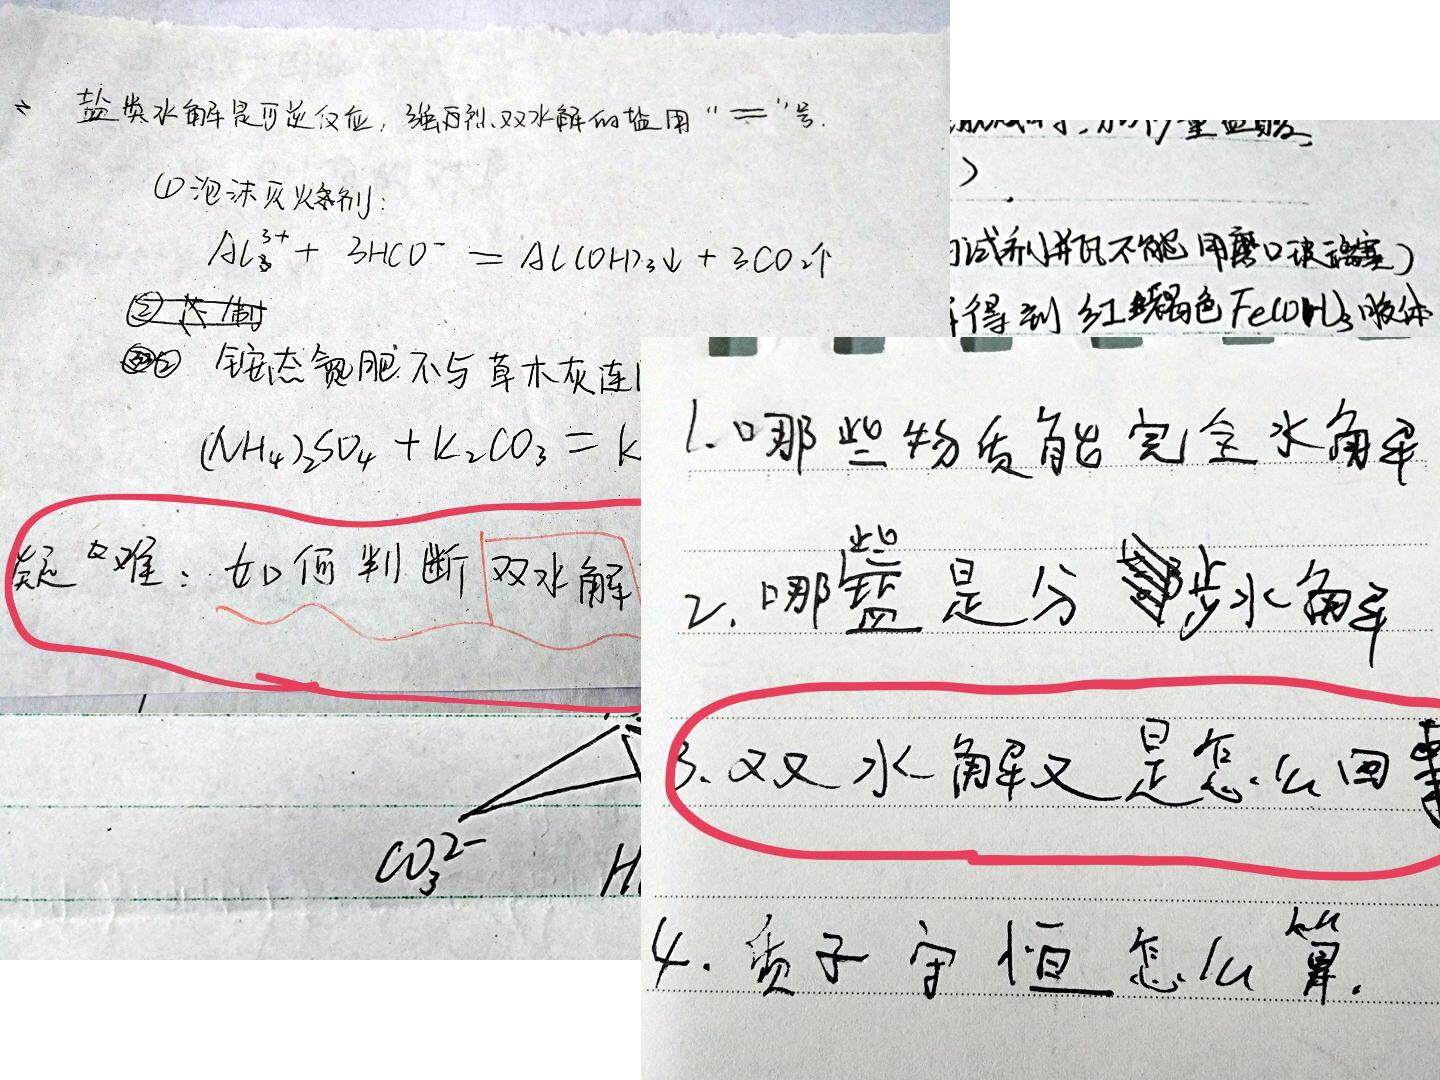 盐类水解是可逆反应, 强烈、双水解的盐用“=”号.
① 泡沫灭火器剂:
Al³⁺ + 3HCO⁻ = Al(OH)₃↓ + 3CO₂↑
② 铵态氮肥不与草木灰连
(NH₄)₂SO₄ + K₂CO₃ = K
疑难: 如何判断双水解
CO₃²⁻
H
试剂瓶不能用磨口玻璃塞)
得到红褐色Fe(OH)₃胶体
1. 哪些物质能完全水解
2. 哪些盐是分步水解
3. 双水解又是怎么回事
4. 质子守恒怎么算.